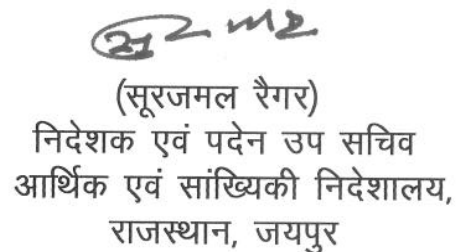 (सूरजमल रैगर)
निदेशक एवं पदेन उप सचिव
आर्थिक एवं सांख्यिकी निदेशालय,
राजस्थान, जयपुर